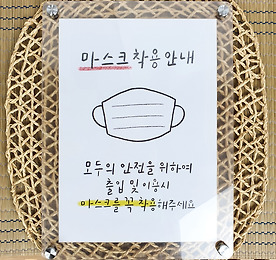 마스크 착용 안내
모두의 안전을 위하여
출입 및 이용시
마스크를 꼭 착용해주세요